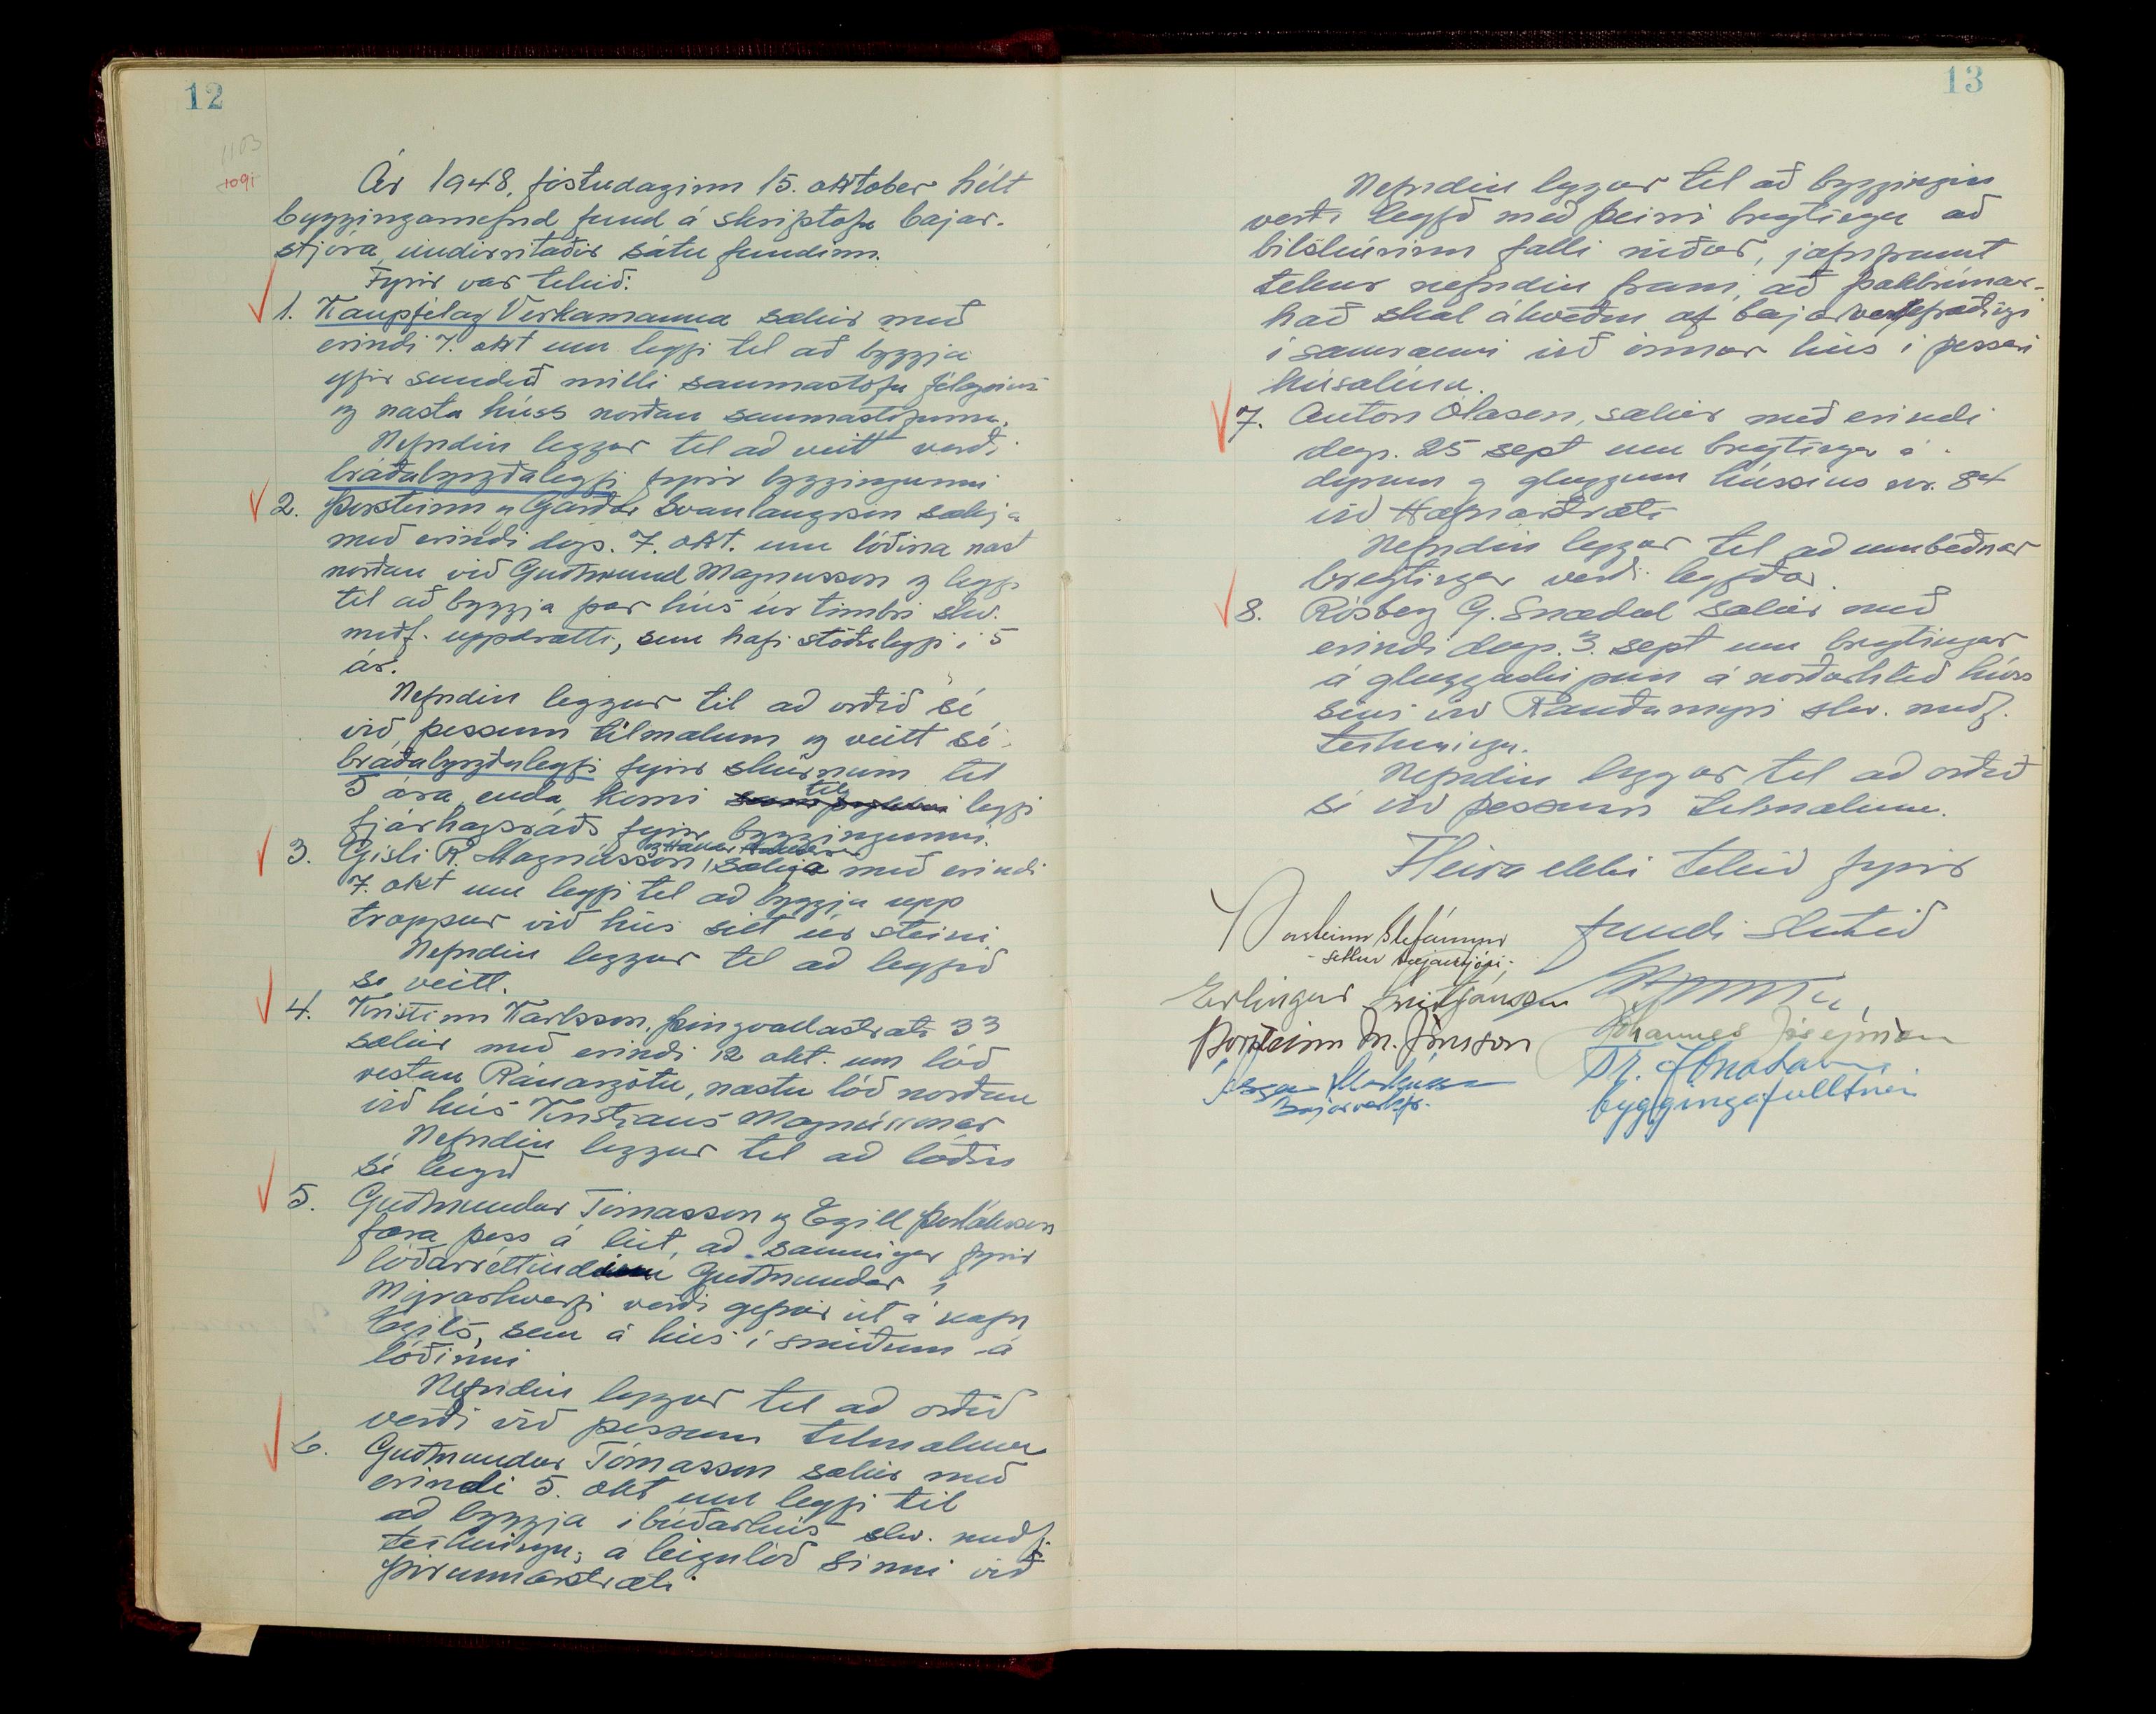 12
1103
Ár 1948, föstudaginn 15. október hélt
byggingarnefnd fund á skrifstofu bæjar-
stjóra, undirritaðir sátu fundinn.
Fyrir var tekið:
1. Kaupfélag Verkamanna sækir með
erindi 7. okt um leyfi til að byggja
yfir sundið milli saumastofu félagsins
og næsta húss norðan saumastofunnar.
Nefndin leggur til að veitt verði
bráðabyrgðaleyfi fyrir byggingunni
2. Þorsteinn og Garðar Svanlaugsson sækja
með erindi dags. 7. okt. um lóðina næst
norðan við Guðmund Magnússon og leyfi
til að byggja þar hús úr timbri skv.
meðf. uppdrætti, sem hafi stöðuleyfi í 5
ár.
Nefndin leggur til að orðið sé
við þessum tilmælum og veitt sé
bráðabyrgðaleyfi fyrir skúrnum til
5 ára, enda komi til leyfi
fjárhagsráðs fyrir byggingunni.
3. Gísli R. Magnússon, sækja með erindi
7. okt um leyfi til að byggja upp
tröppur við hús sitt úr steini.
Nefndin leggur til að leyfið
sé veitt.
4. Kristinn Karlsson, Þingvallastræti 33
sækir með erindi 12 okt. um lóð
vestan Ránargötu, næstu lóð norðan
við hús Kristjáns Magnússonar
Nefndin leggur til að lóðin
sé leigð
5. Guðmundur Tómasson og Egill Þorláksson
fara þess á leit, að samningar fyrir
lóðarréttindum Guðmundar í
Mýrarhverfi verði gefnir út á nafn
Egils, sem á hús í smíðum á
lóðinni
Nefndin leggur til að orðið
verði við þessum tilmælum
6. Guðmundur Tómasson sækir með
erindi 5. okt um leyfi til
að byggja íbúðarhús skv. meðf.
teikningu, á leigulóð sinni við
Þórunnarstræti
13
Nefndin leggur til að byggingin
verði leyfð með þeirri breytingu að
bílskúrinn falli niður, jafnframt
tekur nefndin fram, að þakbrúnar-
hæð skal ákveðin af bæjarverkfræðingi
í samræmi við önnur hús í þessari
húsalínu.
7. Anton Ólasen, sækir með erindi
dags. 25 sept um breytingu á
dyrum og gluggum hússins nr. 84
við Hafnarstræti
Nefndin leggur til að umbeðnar
breytingar verði leyfðar.
8. Rósberg G. Snædal sækir með
erindi dags. 3. sept um breytingar
á gluggaskipun á norðurhlið húss
síns við Rauðumýri skv. meðf.
teikningu.
Nefndin leggur til að orðið
sé við þessum tilmælum.
Fleira ekki tekið fyrir
fundi slitið
Þorsteinn Stefánsson
- settur bæjarstjóri -
Erlingur Friðjónsson
Þorsteinn M. Jónsson
Jóhannes Jósepsson
Bæjarverkfr.
byggingafulltrúi